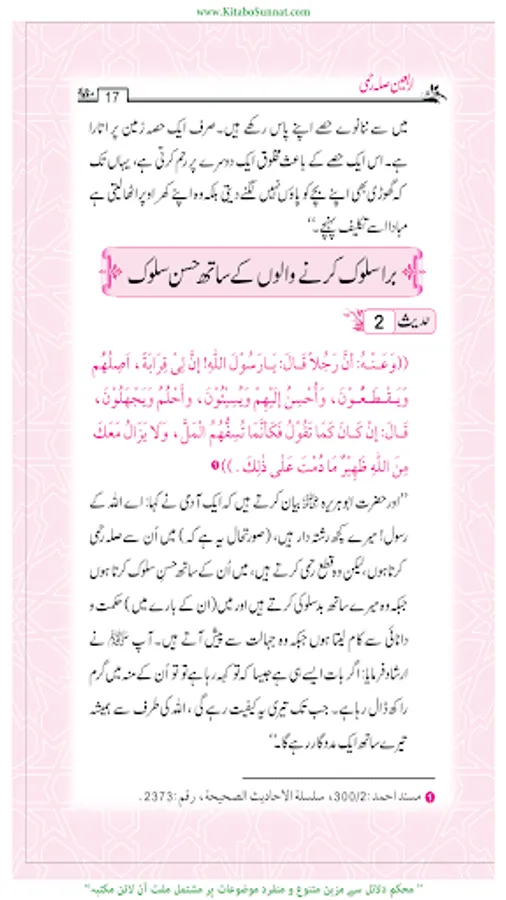 www.KitaboSunnat.com
اربعین صلہ رحمی
17
میں سے ننانوے حصے اپنے پاس رکھے ہیں۔ صرف ایک حصہ زمین پر اتارا
ہے۔ اس ایک حصے کے باعث مخلوق ایک دوسرے پر رحم کرتی ہے، یہاں تک
کہ گھوڑی بھی اپنے بچے کو پاؤں نہیں لگنے دیتی بلکہ وہ اپنے کھر اوپر اٹھا لیتی ہے
مبادا اسے تکلیف پہنچے۔‘‘
برا سلوک کرنے والوں کے ساتھ حسن سلوک
حدیث 2
((وَعَنْهُ: أَنَّ رَجُلاً قَالَ: يَا رَسُوْلَ اللهِ! إِنَّ لِيْ قِرَابَةً، أَصِلُهُمْ
وَيَقْطَعُوْنَ، وَأُحْسِنُ إِلَيْهِمْ وَيُسِيْئُوْنَ، وَأَحْلُمُ وَيَجْهَلُوْنَ،
قَالَ: إِنْ كَانَ كَمَا تَقُوْلُ فَكَأَنَّمَا تُسِفُّهُمُ الْمَلَّ، وَلَا يَزَالُ مَعَكَ
مِنَ اللهِ ظَهِيْرٌ مَا دُمْتَ عَلَى ذٰلِكَ.)) ❶
’’اور حضرت ابو ہریرہ رضی اللہ عنہ بیان کرتے ہیں کہ ایک آدمی نے کہا: اے اللہ کے
رسول! میرے کچھ رشتہ دار ہیں، (صورتحال یہ ہے کہ) میں اُن سے صلہ رحمی
کرتا ہوں، لیکن وہ قطع رحمی کرتے ہیں، میں اُن کے ساتھ حسنِ سلوک کرتا ہوں
جبکہ وہ میرے ساتھ بدسلوکی کرتے ہیں اور میں (ان کے بارے میں) حکمت و
دانائی سے کام لیتا ہوں جبکہ وہ جہالت سے پیش آتے ہیں۔ آپ ﷺ نے
ارشاد فرمایا: اگر بات ایسے ہی ہے جیسا کہ تو کہہ رہا ہے تو تو اُن کے منہ میں گرم
راکھ ڈال رہا ہے۔ جب تک تیری یہ کیفیت رہے گی، اللہ کی طرف سے ہمیشہ
تیرے ساتھ ایک مددگار رہے گا۔‘‘
❶ مسند احمد: 300/2، سلسلة الاحاديث الصحيحة، رقم: 2373.
"محکم دلائل سے مزین متنوع و منفرد موضوعات پر مشتمل مفت آن لائن مکتبہ"